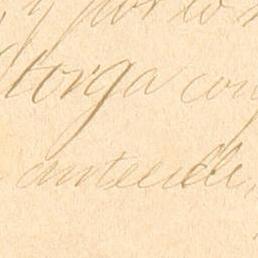 y por lo
torga con
antecede,